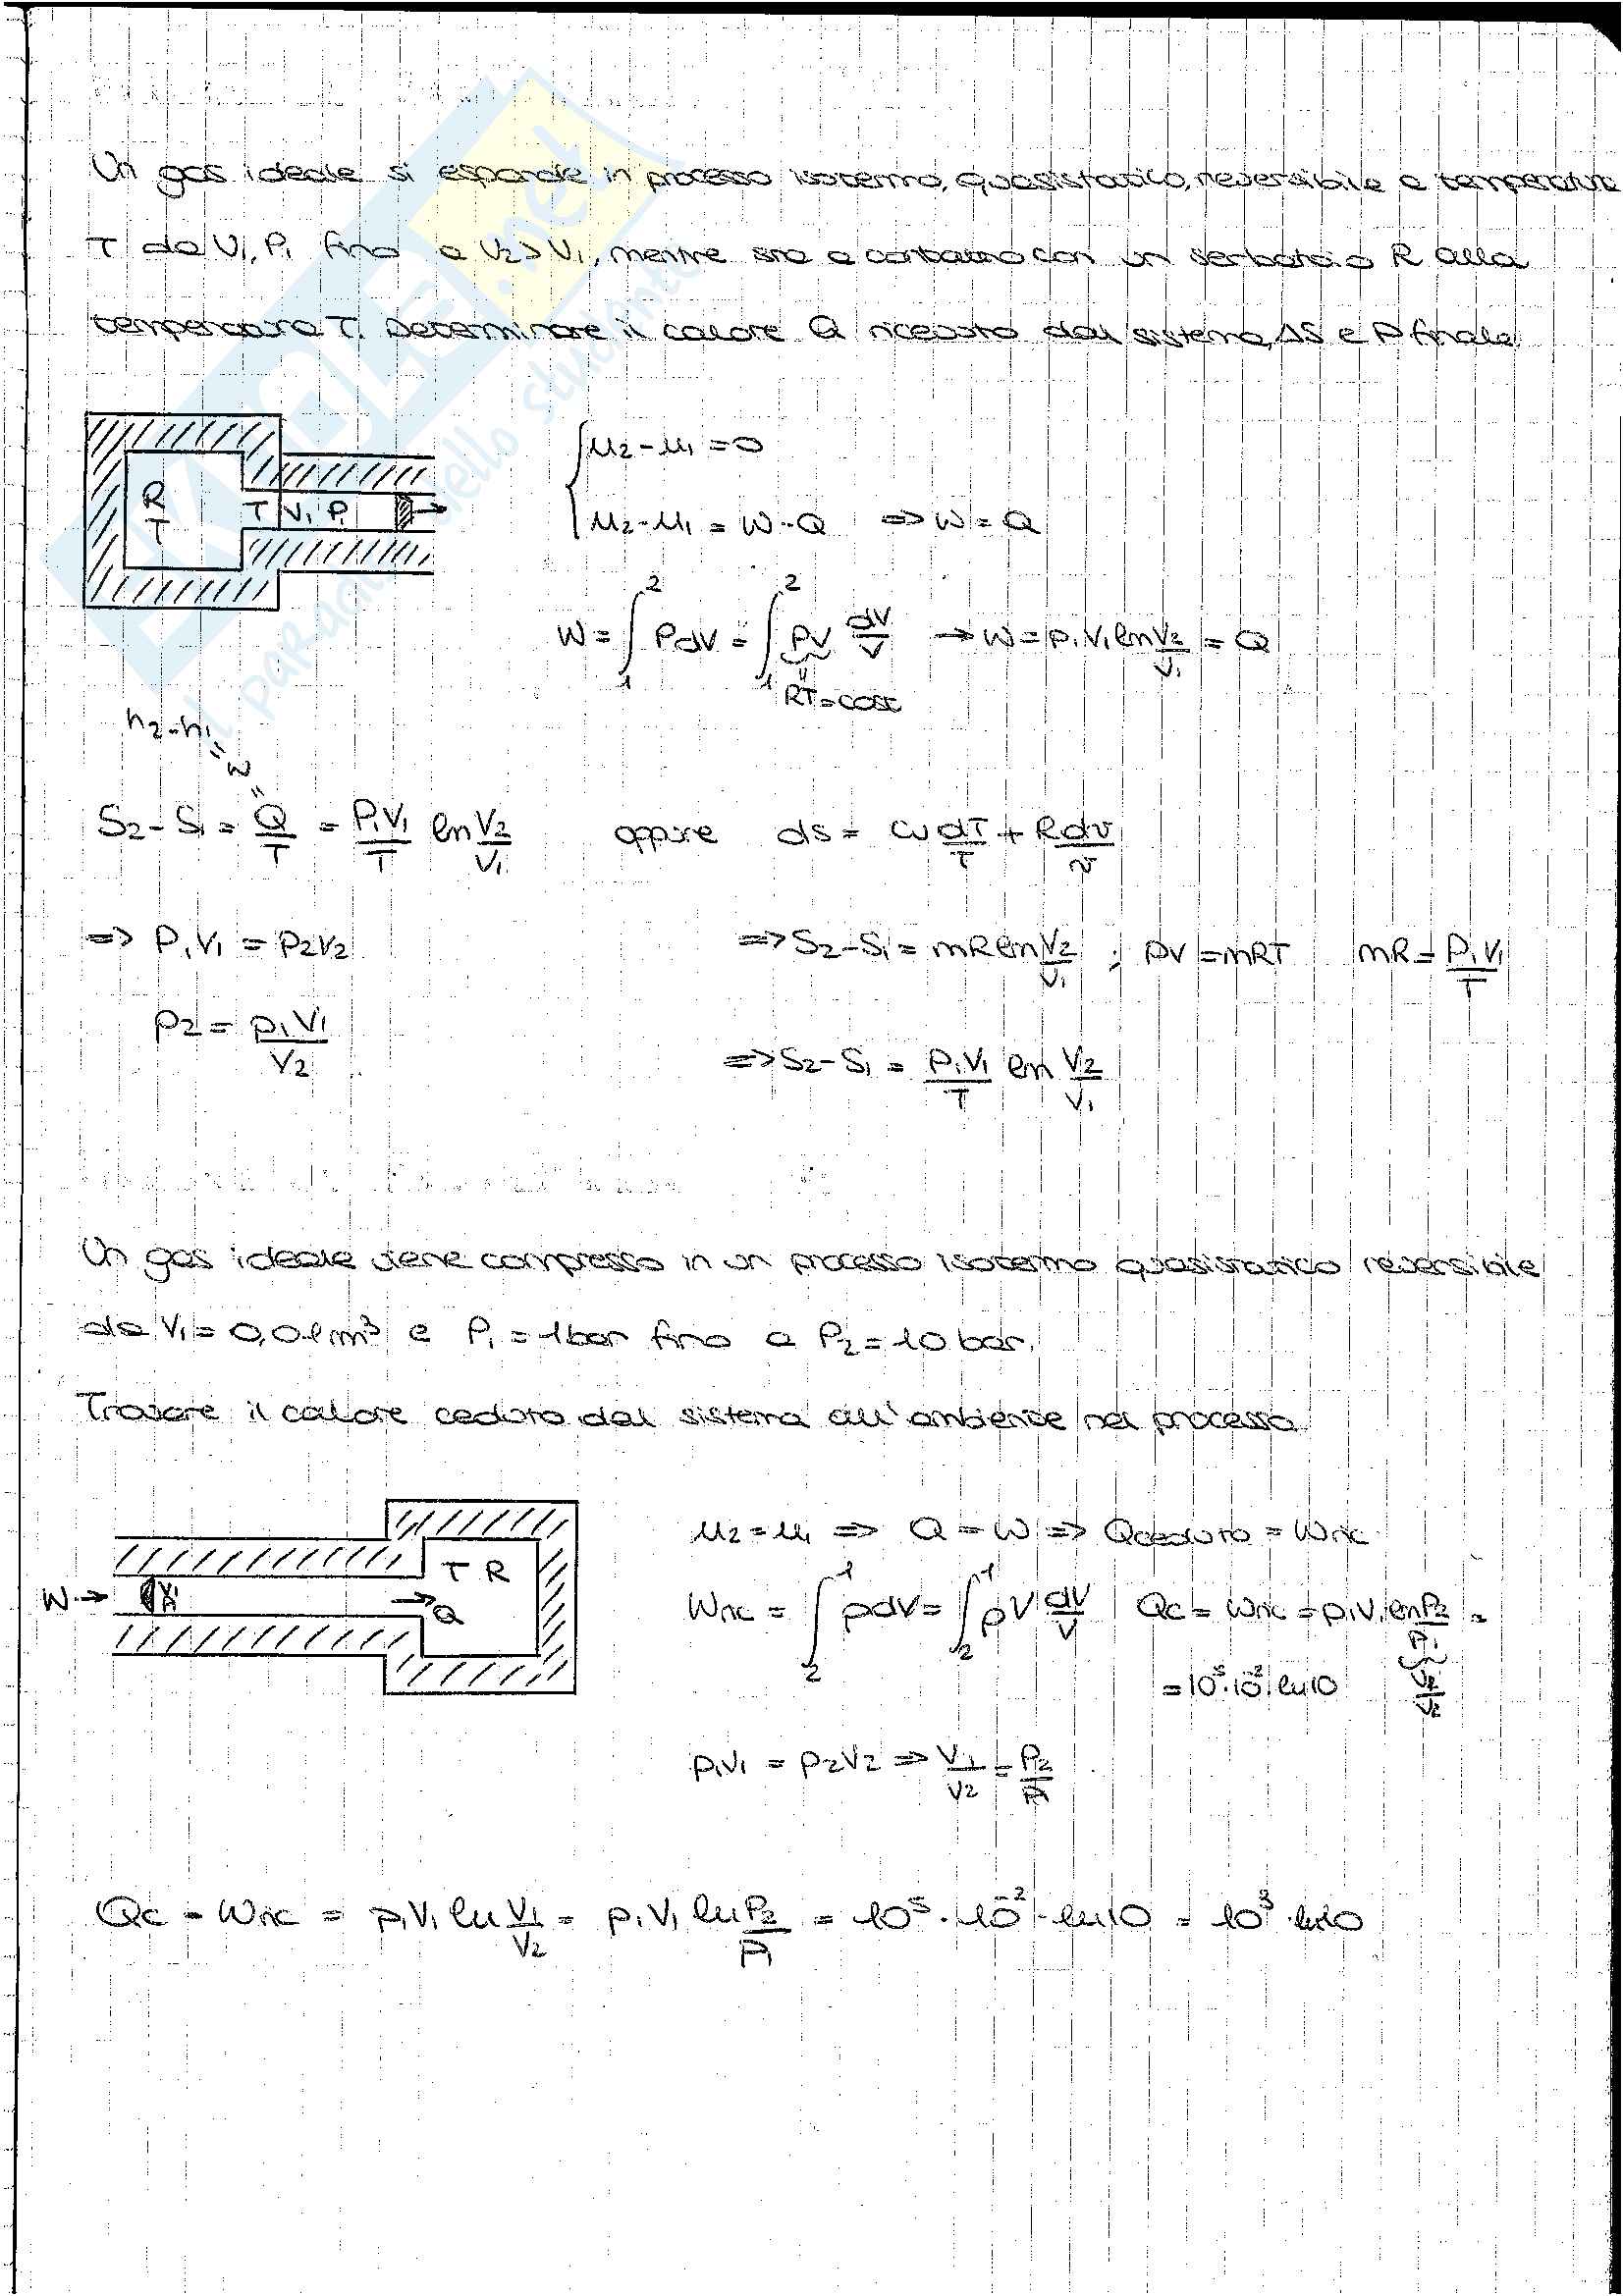 Un gas ideale si espande in processo isotermo, quasistatico, reversibile a temperatura
T da V₁, P₁ fino a V₂>V₁, mentre sta a contatto con un serbatoio R alla
temperatura T. Determinare il calore Q ricevuto dal sistema, ΔS e P finale
R
T
T V₁ P₁
u₂-u₁=0
u₂-u₁=W-Q => W=Q
W=∫₁² PdV=∫₁² PV dV/V → W=P₁V₁ ln V₂/V₁ = Q
RT=cost
h₂-h₁
" W "
S₂-S₁ = Q/T = P₁V₁/T ln V₂/V₁ oppure ds = cv dT/T + R dv/v
=> P₁V₁ = P₂V₂ => S₂-S₁ = mR ln V₂/V₁ ; PV=mRT mR=P₁V₁/T
P₂ = P₁V₁/V₂
=> S₂-S₁ = P₁V₁/T ln V₂/V₁
Un gas ideale viene compresso in un processo isotermo quasistatico reversibile
da V₁=0,01m³ e P₁=1bar fino a P₂=10bar.
Trovare il calore ceduto dal sistema all'ambiente nel processo
T R
W→ V₁ P₁ → Q
u₂=u₁ => Q=W => Qceduto = Wric
Wric = ∫₂¹ pdV = ∫₂¹ pV dV/V Qc = Wric = P₁V₁ ln P₂/P₁ =
V₁/V₂
= 10⁵·10⁻² ln10
P₁V₁ = P₂V₂ => V₁/V₂ = P₂/P₁
Qc = Wric = P₁V₁ ln V₁/V₂ = P₁V₁ ln P₂/P₁ = 10⁵·10⁻²·ln10 = 10³·ln10